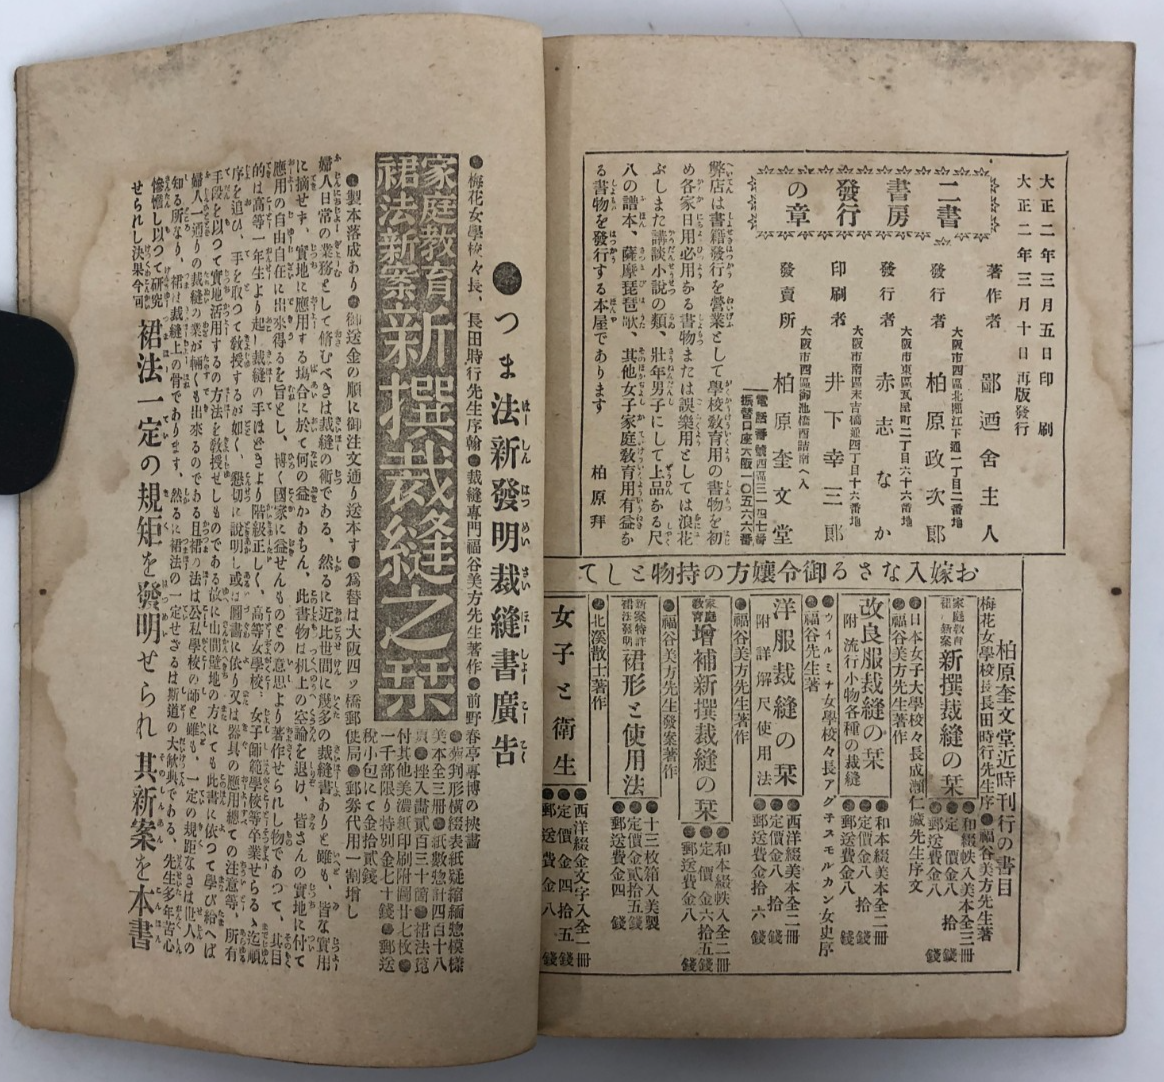 大正二年三月五日印刷
大正二年三月十日再版發行
二書
書房
發行
の章
著作者 鄙迺舍主人
大阪市西區北堀江下通一丁目二番地
發行者 柏原政次郎
大阪市東區瓦屋町二丁目六十六番地
發行者 赤志なか
大阪市南區末吉橋通四丁目十六番地
印刷者 井下幸三郎
大阪市西區御池橋西詰南へ入
發賣所 柏原奎文堂
電話番號西區三一四七番
振替口座大阪一〇五六六番
弊店は書籍發行を營業として學校敎育用の書物を初
め各家日用必用かる書物または誤樂用としては浪花
ぶしまた講談小説の類、壯年男子にして上品かる尺
八の譜本、薩摩琵琶歌、其他女子家庭敎育用有益か
る書物を發行する本屋であります 柏原拜
お嫁入なさる御令孃方の持物として
柏原奎文堂近時刊行の書目
梅花女學校長長田時行先生序●福谷美方先生著
家庭敎育新案新撰裁縫の栞
●和綴帙入美本全三冊
●定價金八拾錢
●郵送費金八錢
●日本女子大學校々長成瀬仁藏先生序文
●福谷美方先生著作
改良服裁縫の栞
附流行小物各種の裁縫
●和本綴美本全二冊
●定價金八拾錢
●郵送費金八錢
●ウイルミナ女學校々長アグチスモルガン女史序
●福谷先生著
洋服裁縫の栞
附詳解尺使用法
●西洋綴美本全二冊
●定價金八拾錢
●郵送費金拾六錢
●福谷美方先生著作
家庭敎育增補新撰裁縫の栞
●和本綴帙入全二冊
●定價金六拾五錢
●郵送費金八錢
●福谷美方先生發案著作
新案特許裙法發明裙形と使用法
●十三枚箱入美製
●定價金貳拾五錢
●郵送費金四錢
●北溪散士著作
女子と衛生
●西洋綴金文字入全一冊
●定價金四拾五錢
●郵送費金八錢
●つま法新發明裁縫書廣告
●梅花女學校々長、長田時行先生序翰●裁縫專門福谷美方先生著作●前野春亭專博の挾畵
家庭敎育
裙法新案
新撰裁縫之栞
●菊判形橫綴表紙疑縮緬惣模樣
美本全三冊●紙數惣計四百十八
頁●挫入畵貳百三十箇●裙法箆
付其他美濃紙印刷附圖廿七枚●
一千部限り特別金七十錢●郵送
稅小包にて金拾貳錢
●製本落成あり●御送金の順に御注文通り送本す●爲替は大阪四ツ橋郵便局●郵劵代用一割增し
婦人日常の業務として脩むべきは裁縫の術である、然るに近比世間に幾多の裁縫書ありと雖も、皆な實用
に摘せず、實地に應用する塲合に於て何の益かあらん、此書物は机上の空論を退け、皆さんの實地に付て
應用の自由自在に出來得るを旨とし、博く國家に益せんものとの意思より著作せられし物であつて、其目
的は高等一年生より起し裁縫の手ほどきより階級正しく、高等女學校、女子師範學校等卒業せらるゝ迄順
序を追ひ、手を取つて敎授するが如く、懇切に說明し或は圖畵に依り又は器具の應用總ての注意等、所有
手段を以つて實地活用するの方法を敎授せしものである故に山間壁地の方にても此書に依つて學び給へば
婦人一通りの裁縫の業が輛くも出來るのである且裙の法は公私學校の師と雖も、一定の規距なきは世人の
知る所なり、裙は裁縫上の骨であります、然るに裙法の一定せざるは斯道の大欠典である、先生多年苦心
慘憺し以つて硏究
せられし決果今回
裙法一定の規矩を發明せられ其新案を本書